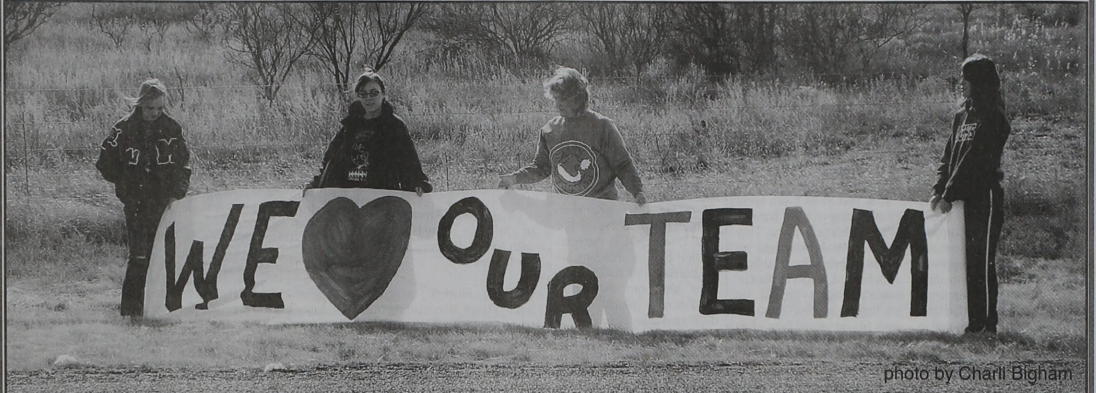 WE OUR TEAM
photo by Charli Bigham